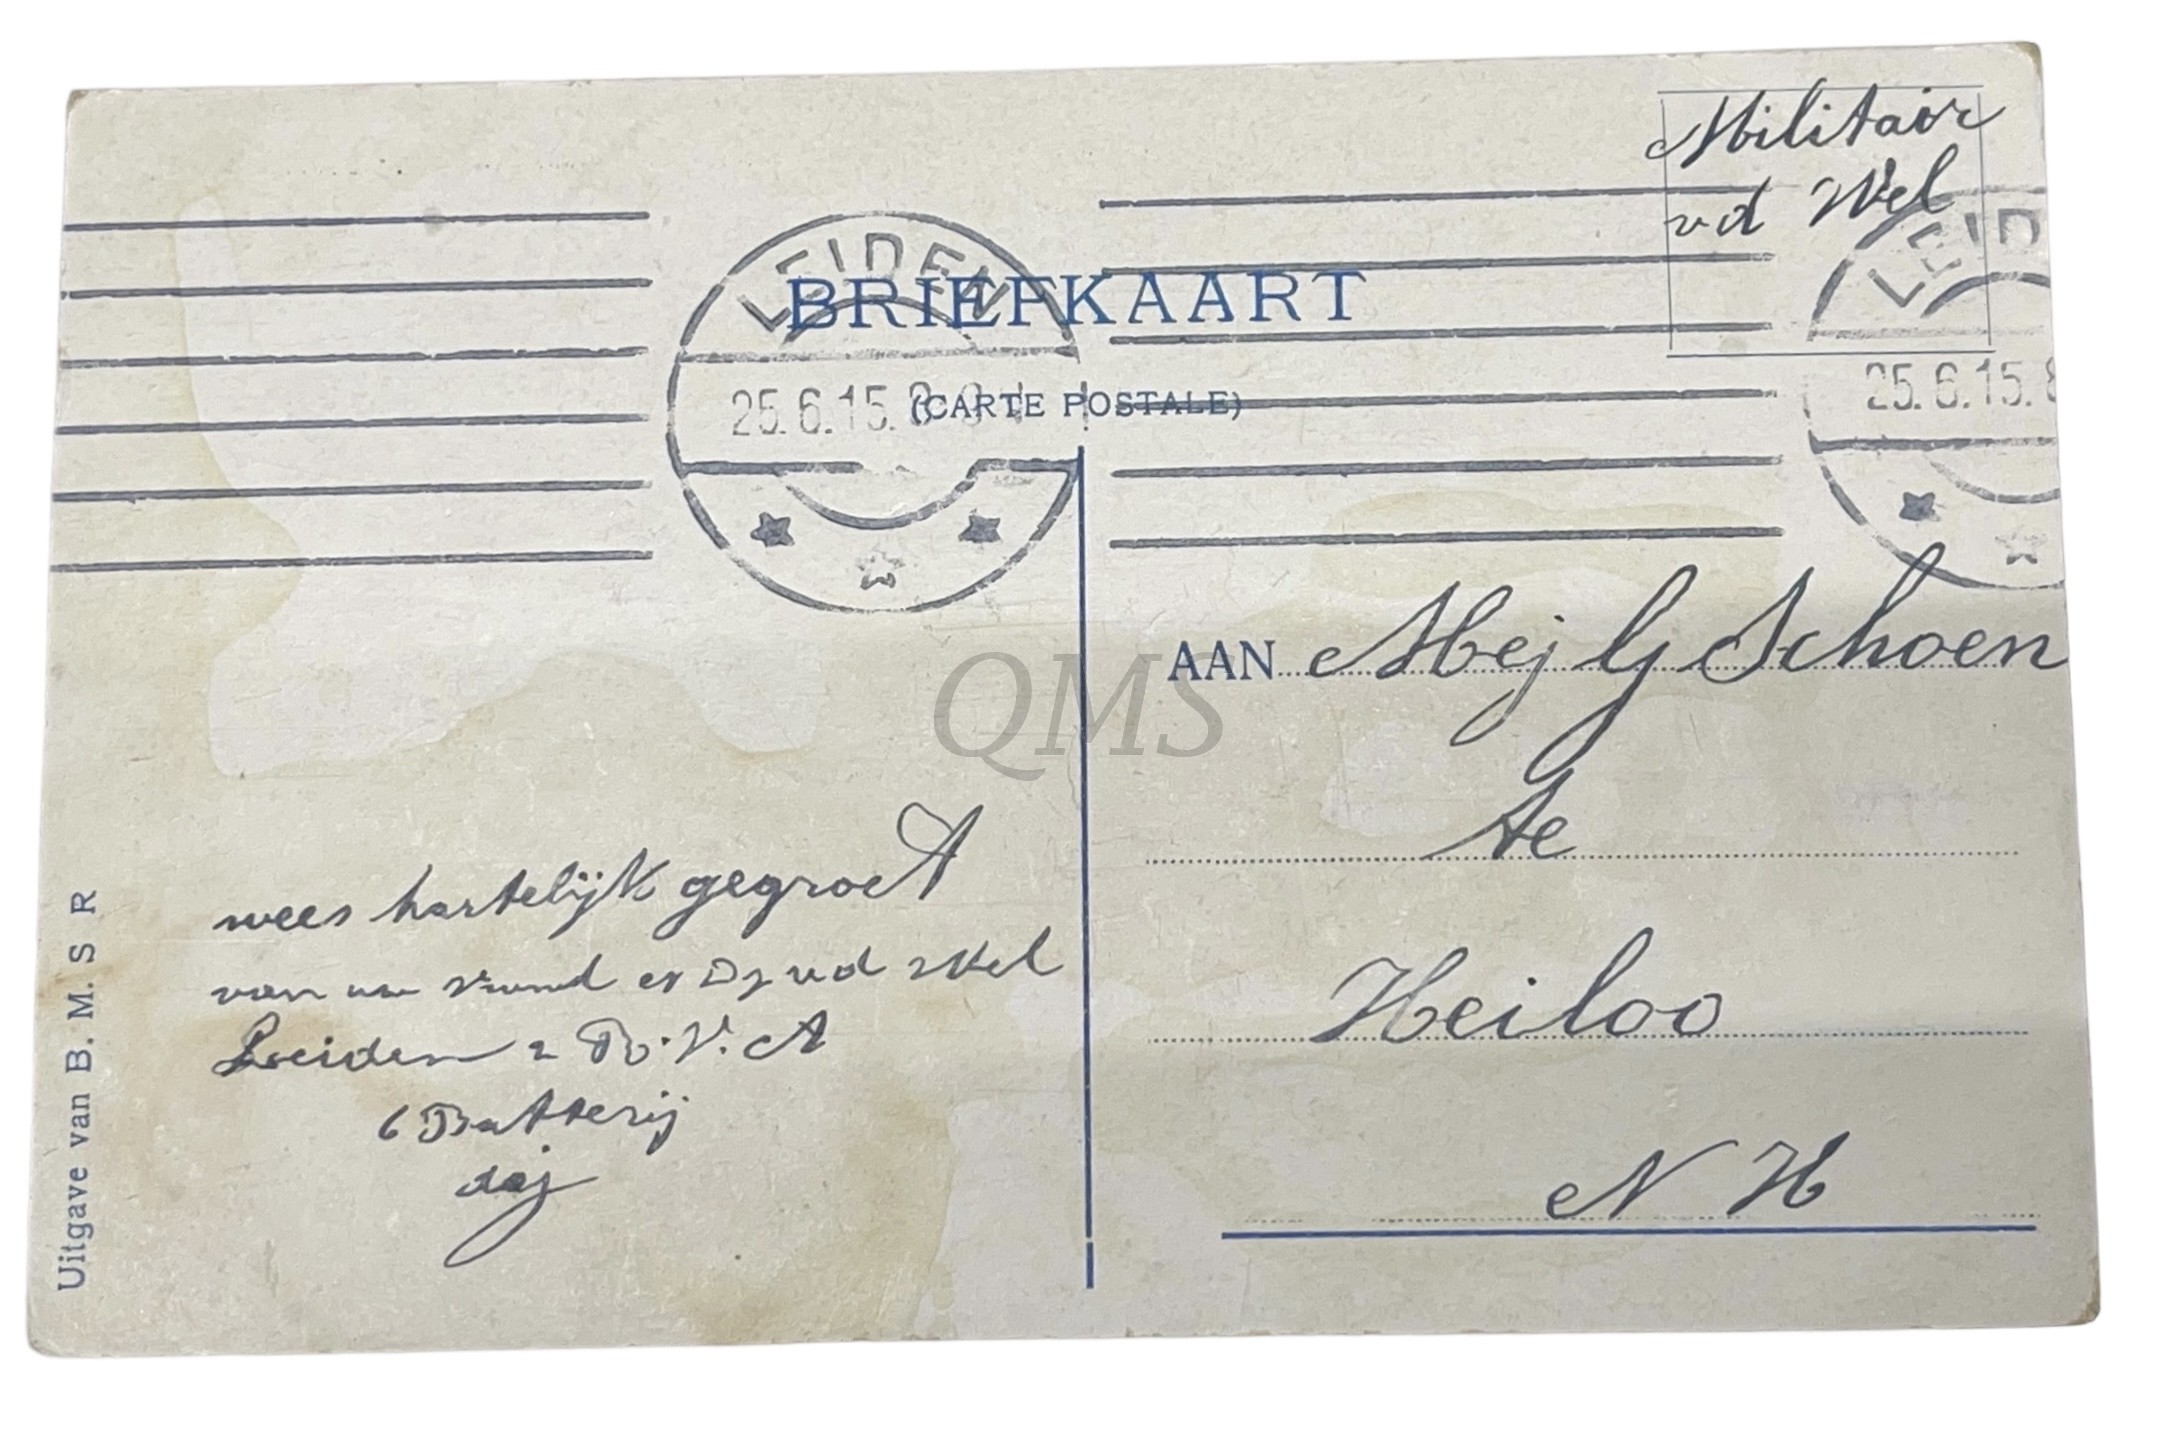 Militair
vd Wel
LEIDEN
LEID
BRIEFKAART
25.6.15.8
25.6.15.8
(CARTE POSTALE)
AAN Mej G Schoen
QMS
te
Heiloo
N H
wees hartelijk gegroet
van uw vriend vd Wel
Leiden 2 R.V.A
6 Batterij
daj
Uitgave van B. M. S R